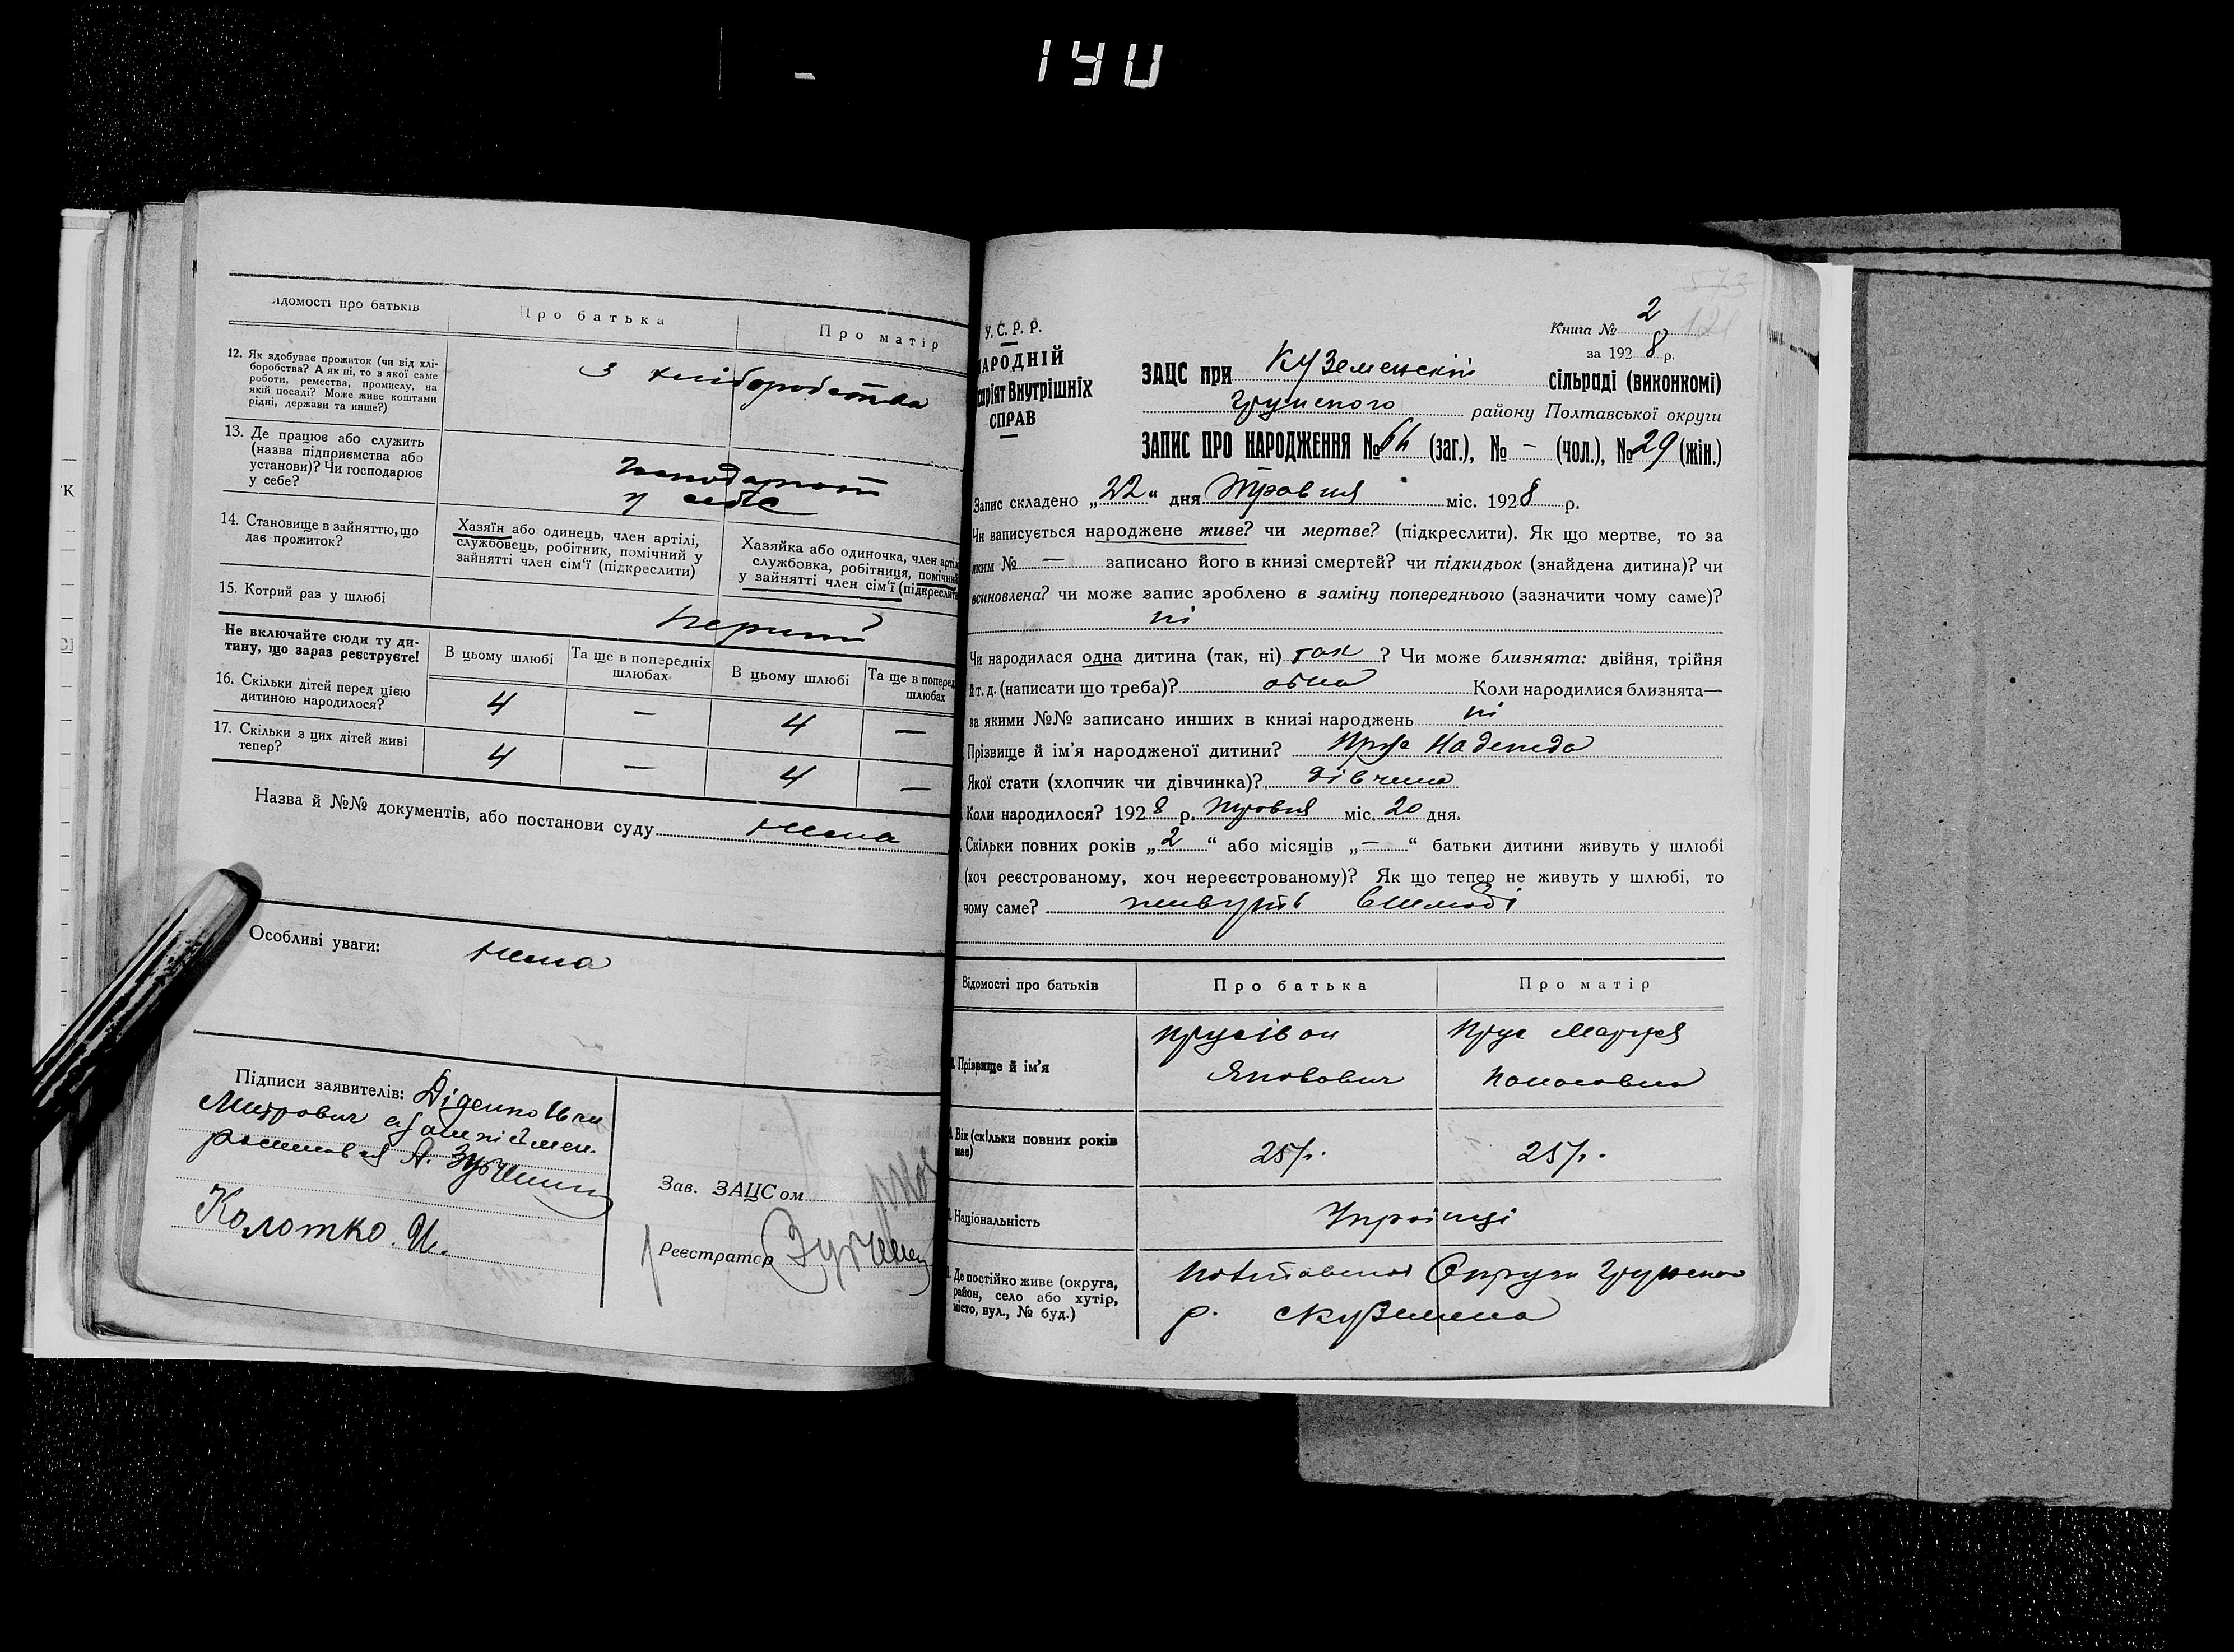 190
Відомості про батьків
Про батька
Про матір
12. Як здобуває прожиток (чи від хлі-
боробства? А як ні, то з якої саме
роботи, ремества, промислу, на
якій посаді? Може живе коштами
рідні, держави та инше?)
З хліборобства
13. Де працює або служить
(назва підприємства або
установи)? Чи господарює
у себе?
у себе
14. Становище в зайняттю, що
дає прожиток?
Хазяїн або одинець, член артілі,
службовець, робітник, помічний у
зайнятті член сім'ї (підкреслити)
Хазяйка або одиночка, член артіл
службовка, робітниця, помічний
у зайнятті член сім'ї (підкреслити
15. Котрий раз у шлюбі
перший
Не включайте сюди ту ди-
тину, що зараз реєструєте!
В цьому шлюбі
Та ще в попередніх
шлюбах
В цьому шлюбі
Та ще в поперед
шлюбах
16. Скільки дітей перед цією
дитиною народилося?
4 — 4 —
17. Скільки з цих дітей живі
тепер?
4 — 4 —
Назва й №№ документів, або постанови суду нема
Особливі уваги: нема
Підписи заявителів: Діденко Іван
Митрович
Колотко. И.
Зав. ЗАЦСом
Реєстратор
У.С.Р.Р.
НАРОДНІЙ
Внутрішніх
СПРАВ
Книга № 2
за 1928 р.
ЗАЦС при Куземенскій сільраді (виконкомі)
Грунского району Полтавської округи
ЗАПИС ПРО НАРОДЖЕННЯ № 64 (заг.), № – (чол.), № 29 (жін.)
Запис складено „22“ дня Травня міс. 1928 р.
Чи записується народжене живе? чи мертве? (підкреслити). Як що мертве, то за
яким № — записано його в книзі смертей? чи підкидьок (знайдена дитина)? чи
всиновлена? чи може запис зроблено в заміну попереднього (зазначити чому саме)?
ні
Чи народилася одна дитина (так, ні) так ? Чи може близнята: двійня, трійня
й т. д. (написати що треба)? одна Коли народилися близнята—
за якими №№ записано инших в книзі народжень ні
Прізвище й ім'я народженої дитини? Прус Надежда
Якої стати (хлопчик чи дівчинка)? дівчина
Коли народилося? 1928 р. Травня міс. 20 дня.
Скільки повних років „2“ або місяців „—“ батьки дитини живуть у шлюбі
(хоч реєстрованому, хоч нереєстрованому)? Як що тепер не живуть у шлюбі, то
чому саме? живуть в шлюбі
Відомості про батьків
Про батька
Про матір
Прізвище й ім'я
Прус Іван
Яковович
Прус Марфа
Панасовна
Вік (скільки повних років
має)
25 р.
25 р.
Національність
Українці
Де постійно живе (округа,
район, село або хутір,
місто, вул., № буд.)
Полтавской Округи Грунского
р. с Куземена